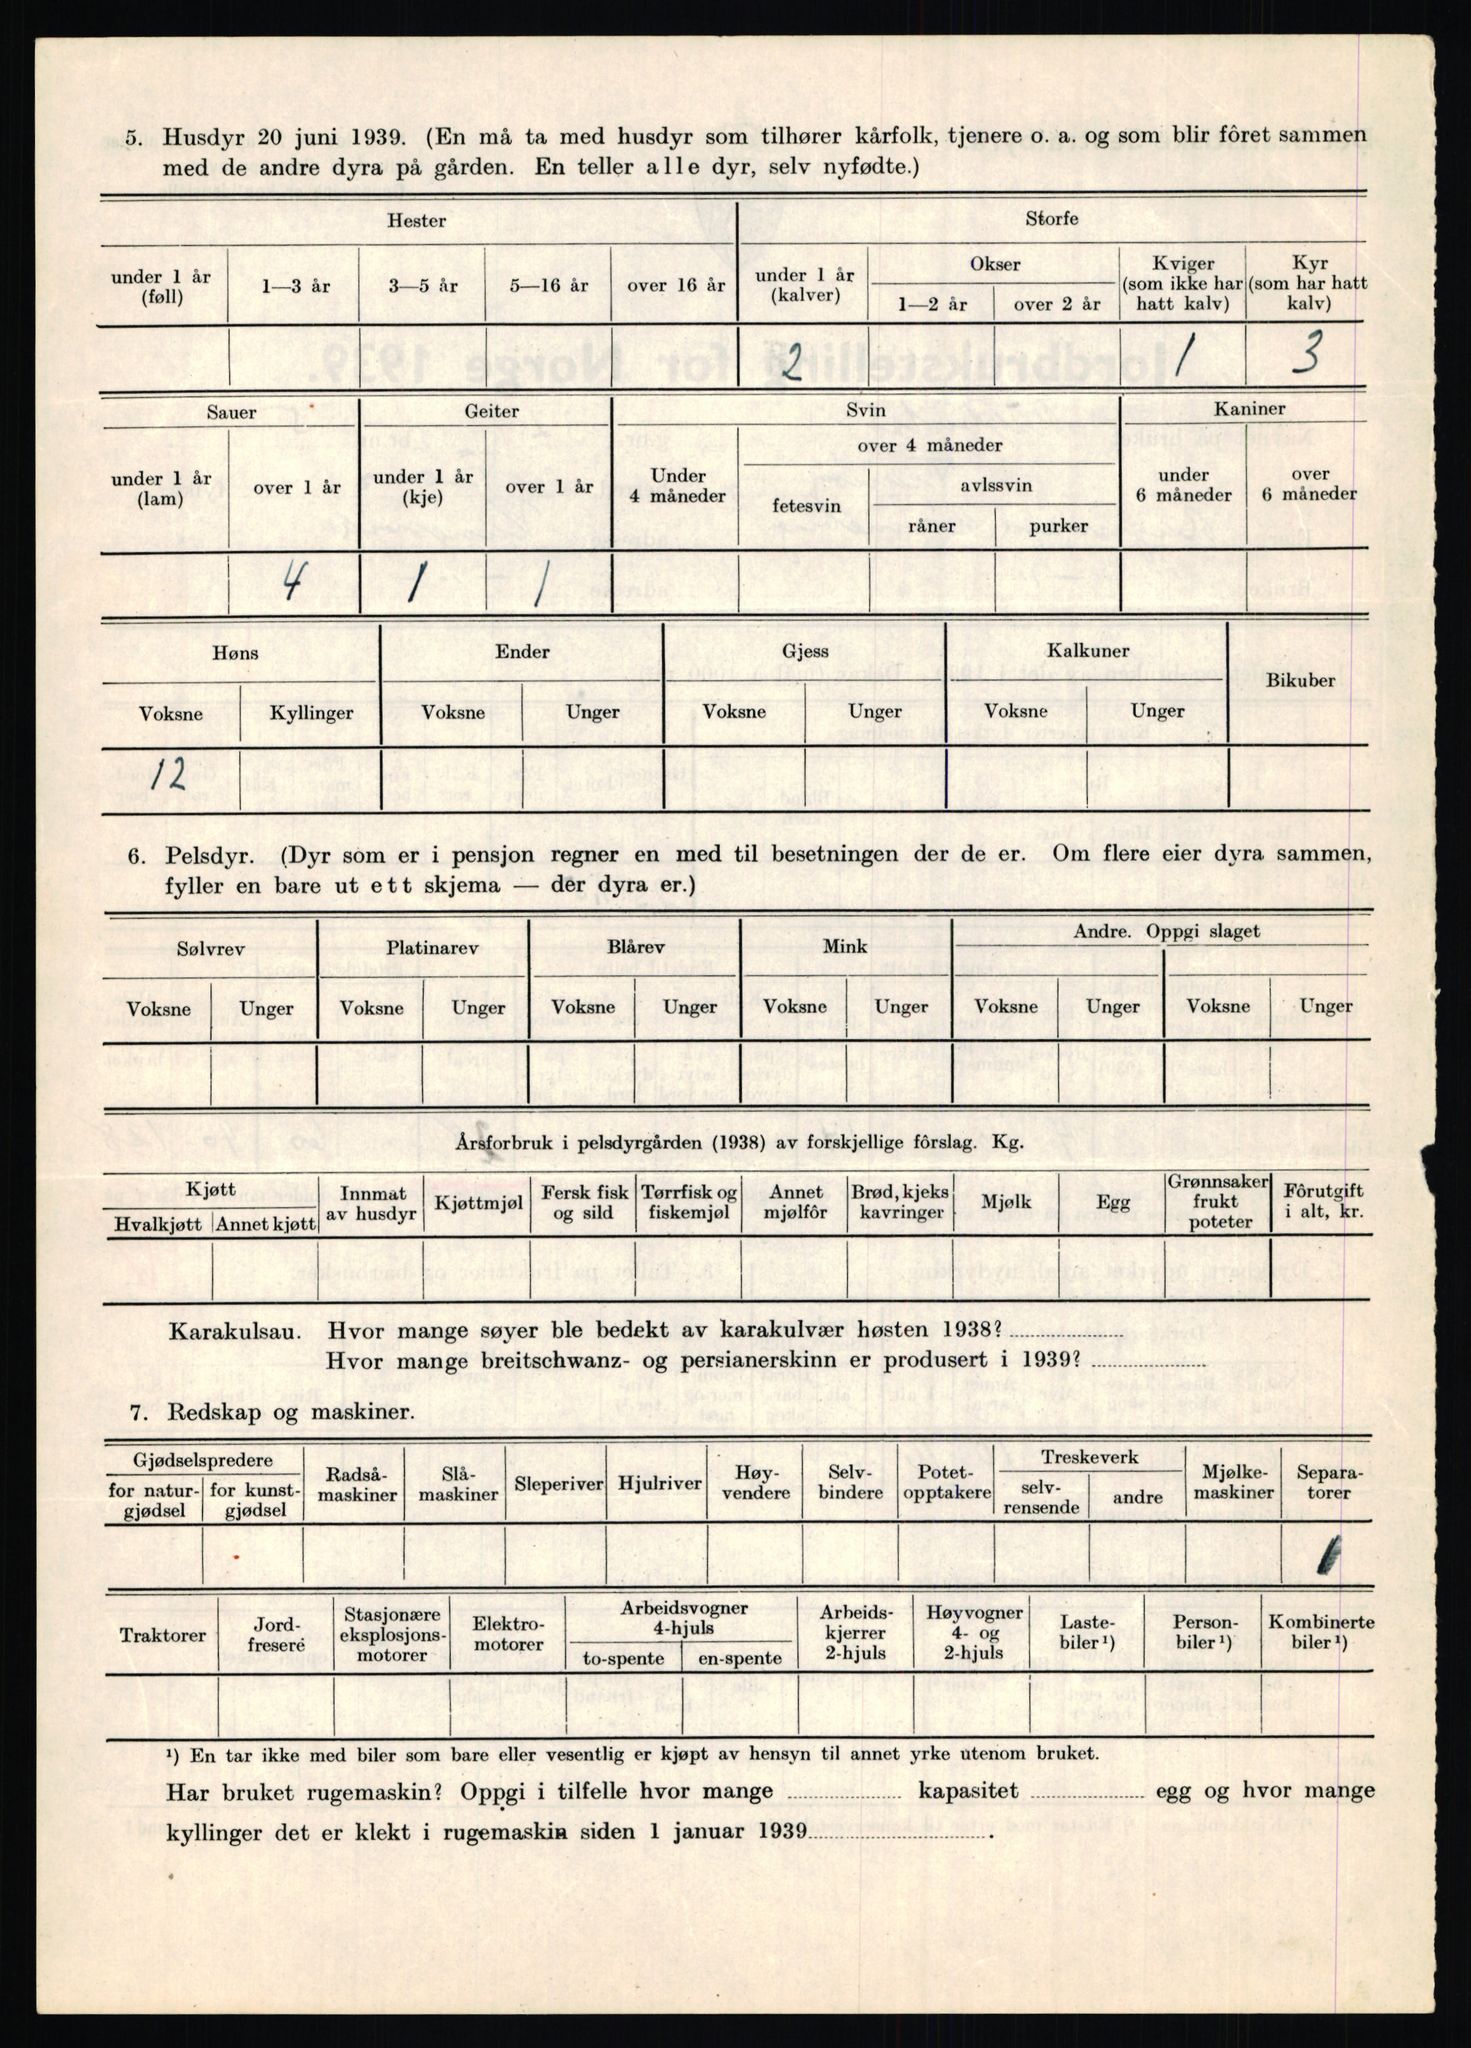 5. Husdyr 20 juni 1939. (En må ta med husdyr som tilhører kårfolk, tjenere o. a. og som blir fôret sammen
med de andre dyra på gården. En teller alle dyr, selv nyfødte.)
Hester Storfe
under 1 år (føll) 1—3 år 3—5 år 5—16 år over 16 år under 1 år (kalver) Okser 1—2 år over 2 år Kviger (som ikke har hatt kalv) Kyr (som har hatt kalv)
2 1 3
Sauer Geiter Svin Kaniner
under 1 år (lam) over 1 år under 1 år (kje) over 1 år Under 4 måneder over 4 måneder fetesvin avlssvin råner purker under 6 måneder over 6 måneder
4 1 1
Høns Ender Gjess Kalkuner Bikuber
Voksne Kyllinger Voksne Unger Voksne Unger Voksne Unger
12
6. Pelsdyr. (Dyr som er i pensjon regner en med til besetningen der de er. Om flere eier dyra sammen,
fyller en bare ut ett skjema — der dyra er.)
Sølvrev Platinarev Blårev Mink Andre. Oppgi slaget
Voksne Unger Voksne Unger Voksne Unger Voksne Unger Voksne Unger Voksne Unger
Årsforbruk i pelsdyrgården (1938) av forskjellige fôrslag. Kg.
Kjøtt Hvalkjøtt Annet kjøtt Innmat av husdyr Kjøttmjøl Fersk fisk og sild Tørrfisk og fiskemjøl Annet mjølfôr Brød, kjeks kavringer Mjølk Egg Grønnsaker frukt poteter Fôrutgift i alt, kr.
Karakulsau. Hvor mange søyer ble bedekt av karakulvær høsten 1938?
Hvor mange breitschwanz- og persianerskinn er produsert i 1939?
7. Redskap og maskiner.
Gjødselspredere for natur-gjødsel for kunst-gjødsel Radså-maskiner Slå-maskiner Sleperiver Hjulriver Høy-vendere Selv-bindere Potet-opptakere Treskeverk selv-rensende andre Mjølke-maskiner Separa-torer
1
Traktorer Jord-fresere Stasjonære eksplosjons-motorer Elektro-motorer Arbeidsvogner 4-hjuls to-spente en-spente Arbeids-kjerrer 2-hjuls Høyvogner 4- og 2-hjuls Laste-biler¹) Person-biler¹) Kombinerte biler¹)
¹) En tar ikke med biler som bare eller vesentlig er kjøpt av hensyn til annet yrke utenom bruket.
Har bruket rugemaskin? Oppgi i tilfelle hvor mange kapasitet egg og hvor mange
kyllinger det er klekt i rugemaskin siden 1 januar 1939.